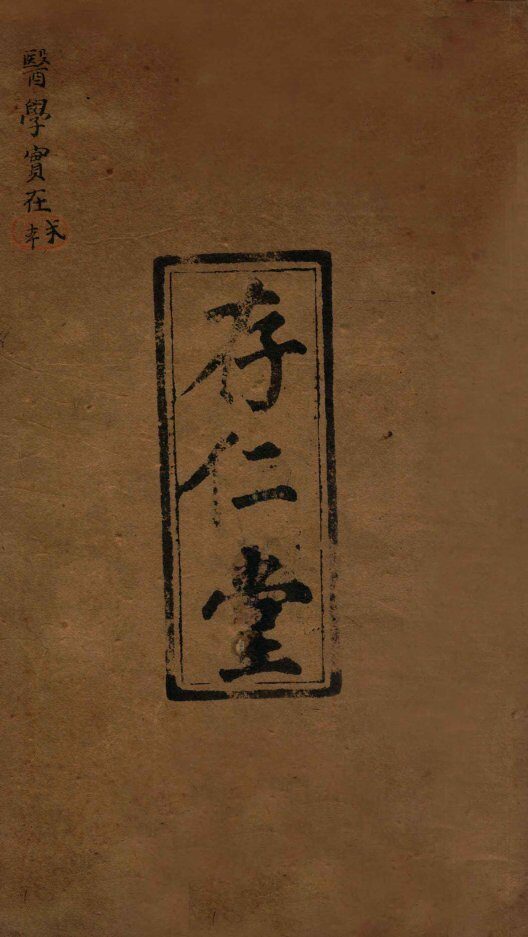 醫學實在
存仁堂